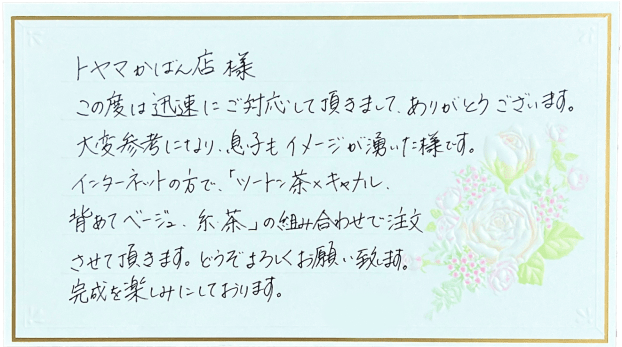 トヤマかばん店 様
この度は迅速にご対応して頂きまして、ありがとうございます。
大変参考になり、息子もイメージが湧いた様です。
インターネットの方で、「ツートン茶×キャメル、
背あてベージュ、糸、茶」の組み合わせで注文
させて頂きます。どうぞよろしくお願い致します。
完成を楽しみにしております。